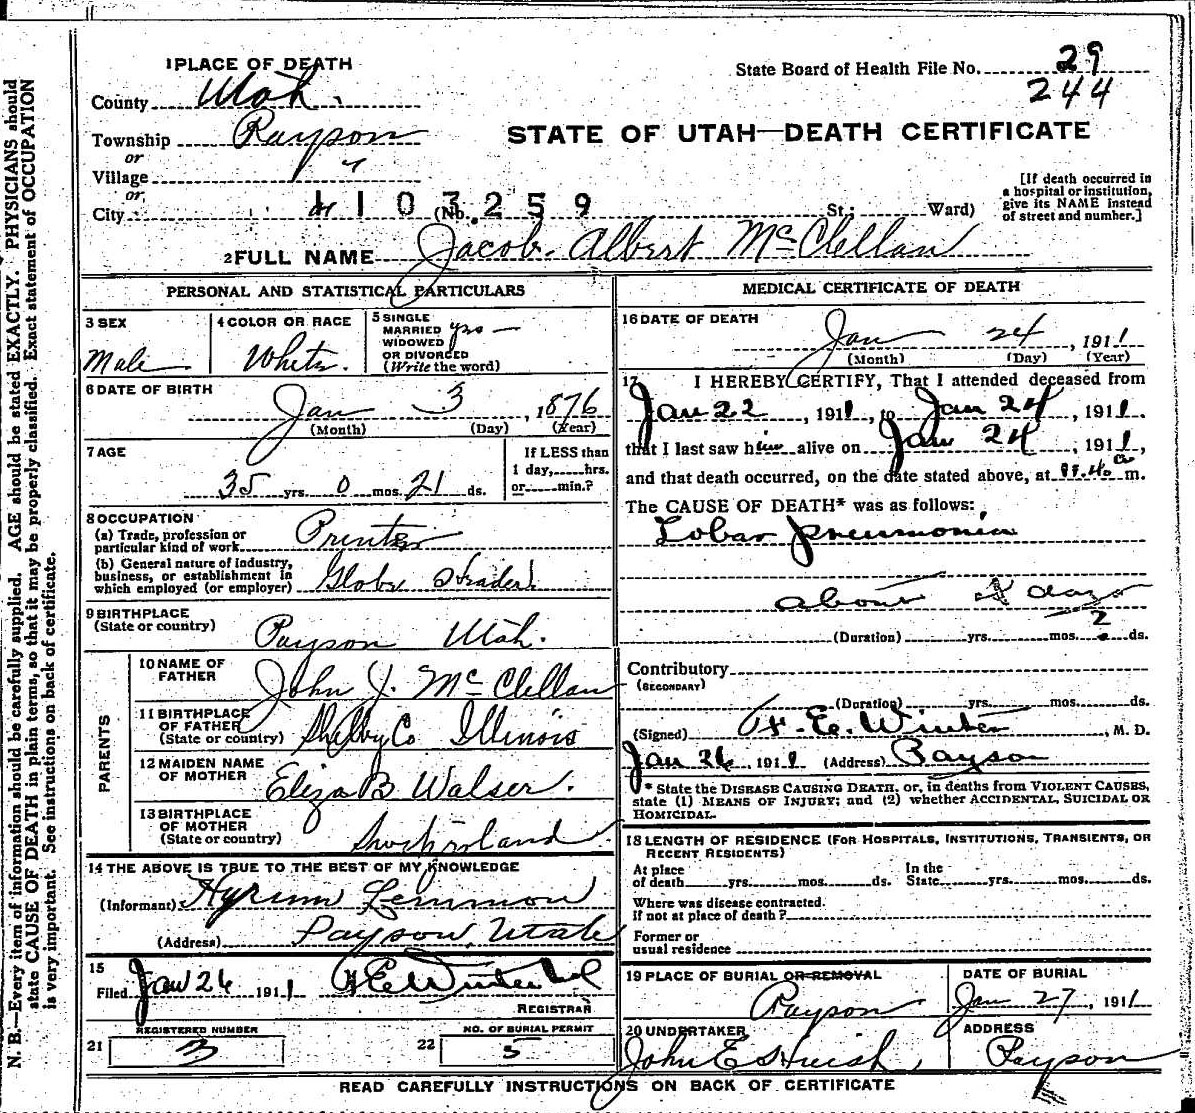 1 PLACE OF DEATH
County Utah.
Township Payson
or
Village
or
City
4103259
(No. St.; Ward)
State Board of Health File No. 29
244
STATE OF UTAH—DEATH CERTIFICATE
[If death occurred in
a hospital or institution,
give its NAME instead
of street and number.]
2 FULL NAME Jacob Albert McClellan
PERSONAL AND STATISTICAL PARTICULARS
3 SEX
Male
4 COLOR OR RACE
White.
5 SINGLE
MARRIED yes —
WIDOWED
OR DIVORCED
(Write the word)
6 DATE OF BIRTH
Jan 3, 1876
(Month) (Day) (Year)
7 AGE
35 yrs. 0 mos. 21 ds.
If LESS than
1 day, hrs.
or min.?
8 OCCUPATION
(a) Trade, profession or
particular kind of work Printer
(b) General nature of industry,
business, or establishment in
which employed (or employer) Globe
9 BIRTHPLACE
(State or country) Payson Utah.
PARENTS
10 NAME OF
FATHER John J. McClellan
11 BIRTHPLACE
OF FATHER
(State or country) Shelby Co Illinois
12 MAIDEN NAME
OF MOTHER Eliza B Walser.
13 BIRTHPLACE
OF MOTHER
(State or country)
14 THE ABOVE IS TRUE TO THE BEST OF MY KNOWLEDGE
(Informant) Hyrum Lemmon
(Address) Payson, Utah
15
Filed Jan 26 1911 H E Winter
REGISTRAR
REGISTERED NUMBER
21 3
NO. OF BURIAL PERMIT
22 5
MEDICAL CERTIFICATE OF DEATH
16 DATE OF DEATH
Jan 24, 1911
(Month) (Day) (Year)
17 I HEREBY CERTIFY, That I attended deceased from
Jan 22, 1911, to Jan 24, 1911,
that I last saw him alive on Jan 24, 1911,
and that death occurred, on the date stated above, at 11.40 a m.
The CAUSE OF DEATH* was as follows:
Lobar pneumonia
about days
2
(Duration) yrs. mos. ds.
Contributory
(SECONDARY)
(Duration) yrs. mos. ds.
(Signed) H. E. Winter, M. D.
Jan 26 1911 (Address) Payson
* State the DISEASE CAUSING DEATH, or, in deaths from VIOLENT CAUSES,
state (1) MEANS OF INJURY; and (2) whether ACCIDENTAL, SUICIDAL OR
HOMICIDAL.
18 LENGTH OF RESIDENCE (FOR HOSPITALS, INSTITUTIONS, TRANSIENTS, OR
RECENT RESIDENTS)
At place
of death yrs. mos. ds.
In the
State yrs. mos. ds.
Where was disease contracted.
if not at place of death?
Former or
usual residence
19 PLACE OF BURIAL OR REMOVAL
Payson
DATE OF BURIAL
Jan 27, 1911
20 UNDERTAKER
John E Huish
ADDRESS
Payson
READ CAREFULLY INSTRUCTIONS ON BACK OF CERTIFICATE
N. B.—Every item of information should be carefully supplied. AGE should be stated EXACTLY. PHYSICIANS should
state CAUSE OF DEATH in plain terms, so that it may be properly classified. Exact statement of OCCUPATION
is very important. See instructions on back of certificate.